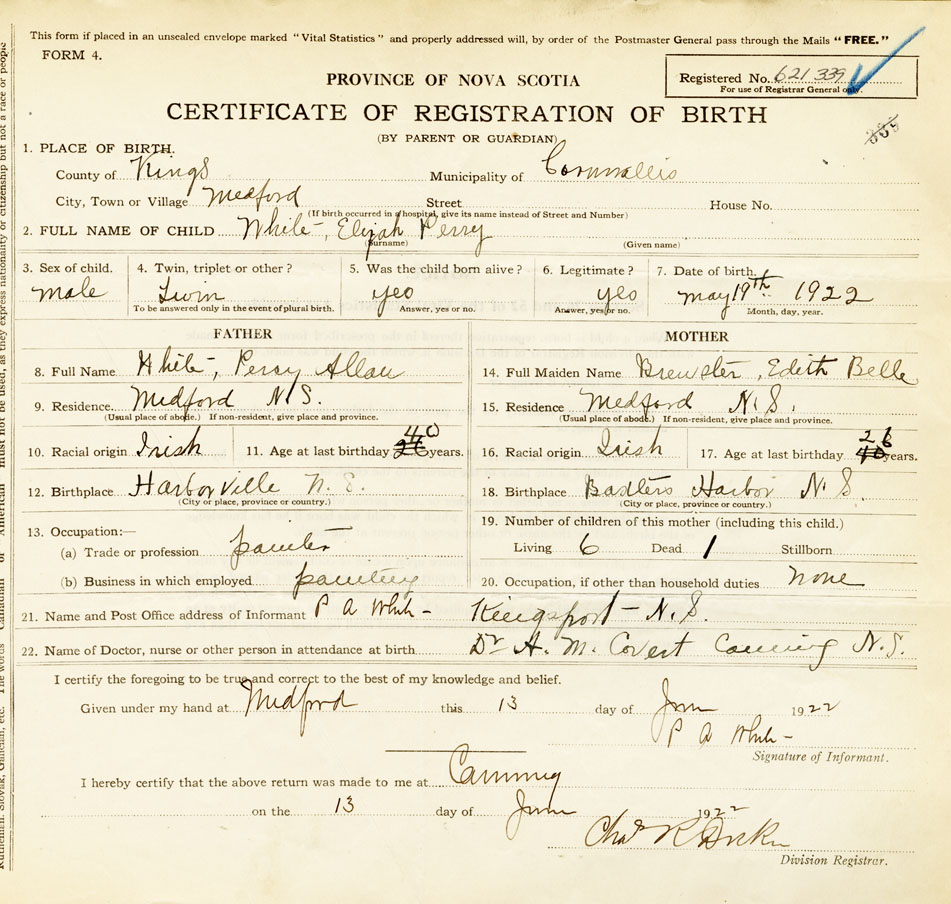 This form if placed in an unsealed envelope marked "Vital Statistics" and properly addressed will, by order of the Postmaster General pass through the Mails "FREE."
FORM 4.
PROVINCE OF NOVA SCOTIA
Registered No. 621 339
For use of Registrar General only.
CERTIFICATE OF REGISTRATION OF BIRTH
(BY PARENT OR GUARDIAN)
335
1. PLACE OF BIRTH.
County of Kings Municipality of Cornwallis
City, Town or Village Medford Street House No.
(If birth occurred in a hospital, give its name instead of Street and Number)
2. FULL NAME OF CHILD White, Elijah Perry
(Surname) (Given name)
3. Sex of child. 4. Twin, triplet or other? 5. Was the child born alive? 6. Legitimate? 7. Date of birth.
male Twin yes yes May 19th 1922
To be answered only in the event of plural birth. Answer, yes or no. Answer, yes or no. Month, day, year.
FATHER MOTHER
8. Full Name White, Percy Allan 14. Full Maiden Name Brewster, Edith Belle
9. Residence. Medford N.S. 15. Residence Medford N.S.
(Usual place of abode.) If non-resident, give place and province. (Usual place of abode.) If non-resident, give place and province.
10. Racial origin Irish 11. Age at last birthday 40 years. 16. Racial origin Irish 17. Age at last birthday 26 years.
12. Birthplace Harborville N.S. 18. Birthplace Baxters Harbor N.S.
(City or place, province or country.) (City or place, province or country.)
13. Occupation:— 19. Number of children of this mother (including this child.)
(a) Trade or profession painter Living 6 Dead 1 Stillborn
(b) Business in which employed painting 20. Occupation, if other than household duties None
21. Name and Post Office address of Informant P A White Kingsport N.S.
22. Name of Doctor, nurse or other person in attendance at birth Dr A. M. Covert Canning N.S.
I certify the foregoing to be true and correct to the best of my knowledge and belief.
Given under my hand at Medford this 13 day of June 1922
P A White
Signature of Informant.
I hereby certify that the above return was made to me at Canning
on the 13 day of June 1922
Chas R
Division Registrar.